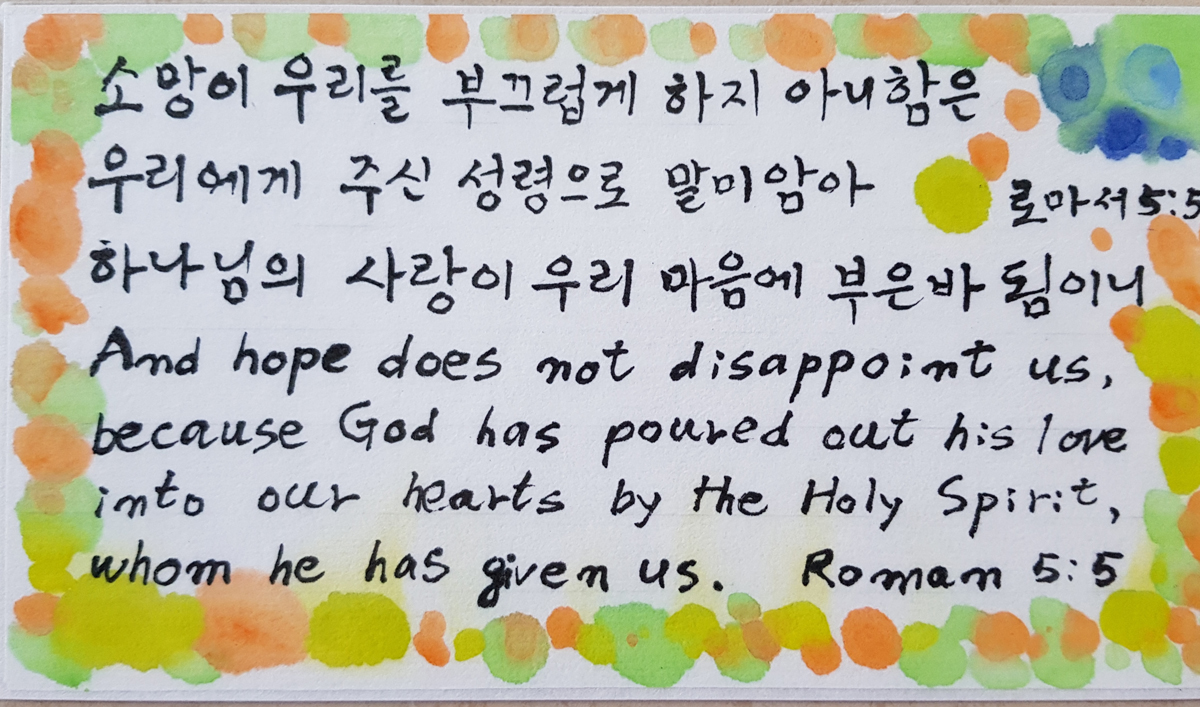 소망이 우리를 부끄럽게 하지 아니함은
우리에게 주신 성령으로 말미암아
로마서 5:5
하나님의 사랑이 우리 마음에 부은바 됨이니
And hope does not disappoint us,
because God has poured out his love
into our hearts by the Holy Spirit,
whom he has given us. Roman 5:5